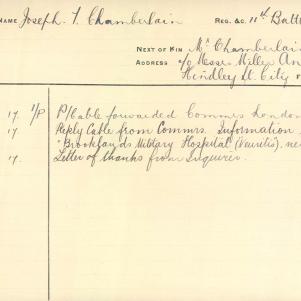 NAME Joseph T. Chamberlain REG. &C. 11th Batt
NEXT OF KIN Mr Chamberlain
ADDRESS c/o Messrs Miller An
Hindley St. City
17. 1/P P/Cable forwarded Commrs London
17. Reply Cable from Commrs. Information
"Brooklands Military Hospital" (Neuritis), ne
17. Letter of thanks from Inquirer.